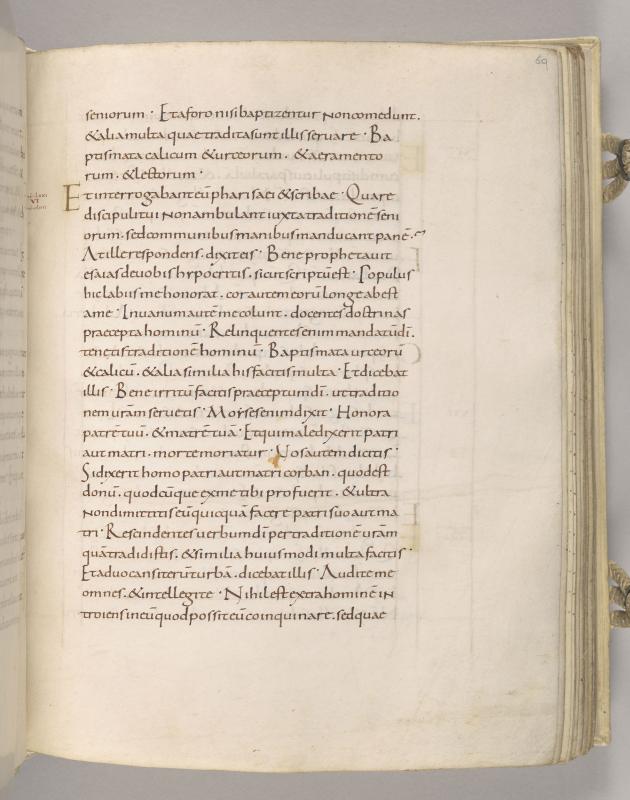 69
seniorum · Et aforo nisi baptizentur Non comedunt.
& alia multa quae tradita sunt illis servare · Ba
ptismata calicum & urceorum . & aeramento
rum . & lectorum ·
VI
Et interrogabant eū pharisaei & scribae · Quare
discipuli tui Non ambulant iuxta traditionē seni
orum . sed communibus manibus manducant panē .
At ille respondens . dixit eis · Bene prophetavit
esaias devobis hypocritis . sicut scriptū est · Populus
hic labiis me honorat . cor autem eorū longe abest
ame · In vanum autē me colunt . docentes doctrinas
praecepta hominū · Relinquentes enim mandatū dī .
tenetis traditionē hominū · Baptismata urceorū
& calicū . & alia similia his facitis multa · Et dicebat
illis · Bene irritū facitis praeceptum dī . ut traditio
nem vr̄am servetis · Moyses enim dixit · Honora
patrē tuū . & matrē tuā · Et qui maledixerit patri
aut matri . morte moriatur · Vos autem dicitis ·
Si dixerit homo patri aut matri corban . quod est
donū . quodcūque ex me tibi profuerit . & ultra
Non dimittitis eū quicquā facere patri suo aut ma
tri · Rescindentes verbum dī per traditionē vr̄am
quā tradidistis . & similia huiusmodi multa facitis ·
Et advocans iterū turbā . dicebat illis · Audite me
omnes . & intellegite · Nihil est extra hominē in
troiens in eū quod possit eū coinquinare . sed quae